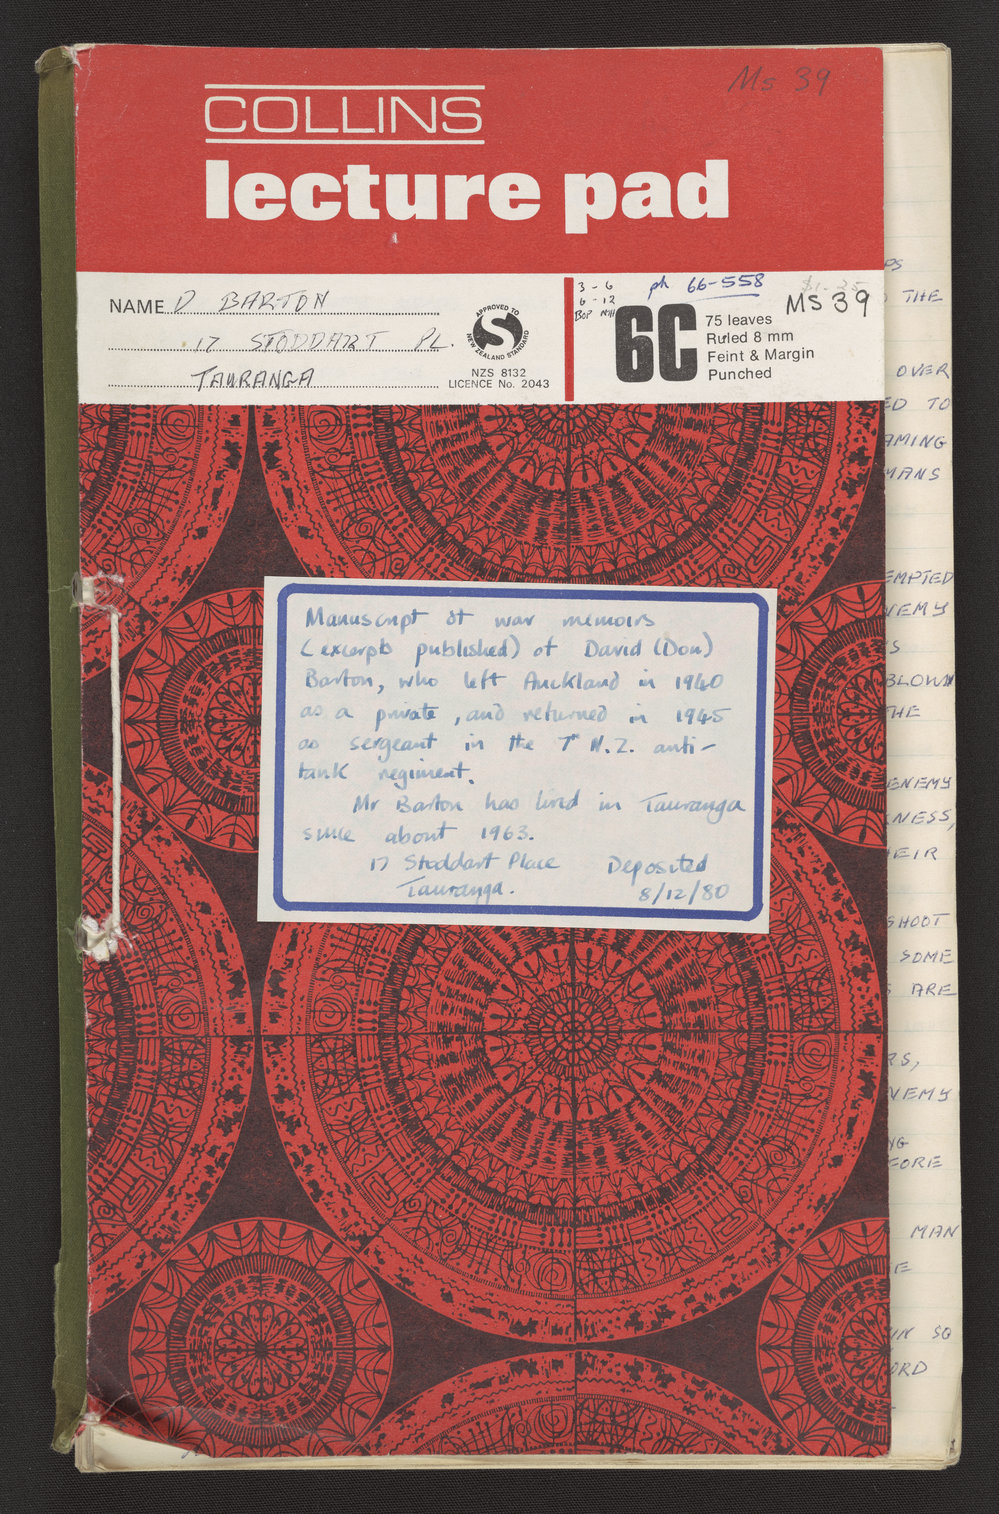 Ms 39
COLLINS
lecture pad
NAME D BARTON
17 STODDART PL.
TAURANGA
APPROVED TO
NEW ZEALAND STANDARD
S
NZS 8132
LICENCE No. 2043
3 - 6
6 - 12
BOP
ph 66-558
MS 39
6C
75 leaves
Ruled 8 mm
Feint & Margin
Punched
Manuscript of war memoirs
(excerpts published) of David (Don)
Barton, who left Auckland in 1940
as a private, and returned in 1945
as sergeant in the 7th N.Z. anti-
tank regiment.
Mr Barton has lived in Tauranga
since about 1963.
17 Stoddart Place
Tauranga.
Deposited
8/12/80
PS
THE
OVER
ED TO
AMING
MANS
EMPTED
NEMY
S
BLOWN
THE
ENEMY
NESS,
EIR
SHOOT
SOME
S ARE
RS,
NEMY
NG
FORE
MAN
E
IN SO
ORD